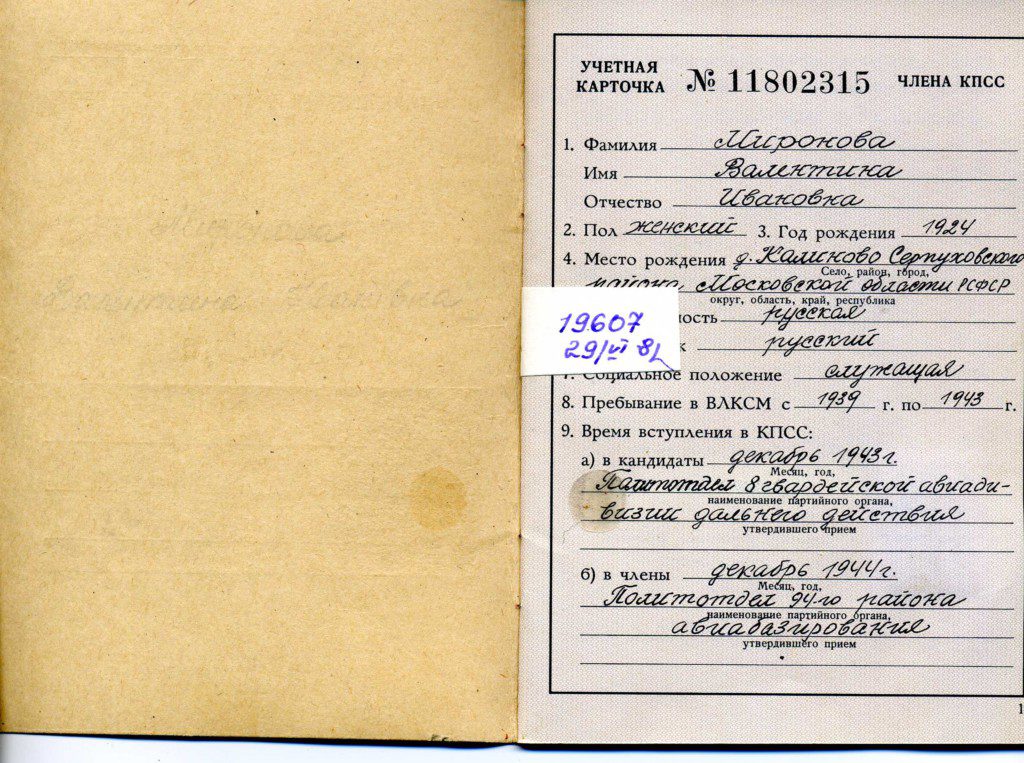 УЧЕТНАЯ
КАРТОЧКА № 11802315 ЧЛЕНА КПСС
1. Фамилия Миронова
Имя Валентина
Отчество Ивановна
2. Пол женский 3. Год рождения 1924
4. Место рождения д. Калиново Серпуховского
Село, район, город,
района Московской области РСФСР
округ, область, край, республика
ность русская
к русский
7. Социальное положение служащая
8. Пребывание в ВЛКСМ с 1939 г. по 1943 г.
9. Время вступления в КПСС:
а) в кандидаты декабрь 1943г.
Месяц, год,
Политотдел 8 гвардейской авиади-
наименование партийного органа,
визии дальнего действия
утвердившего прием
б) в члены декабрь 1944г.
Месяц, год,
Политотдел 94-го района
наименование партийного органа,
авиабазирования
утвердившего прием
1
19607
29/VI